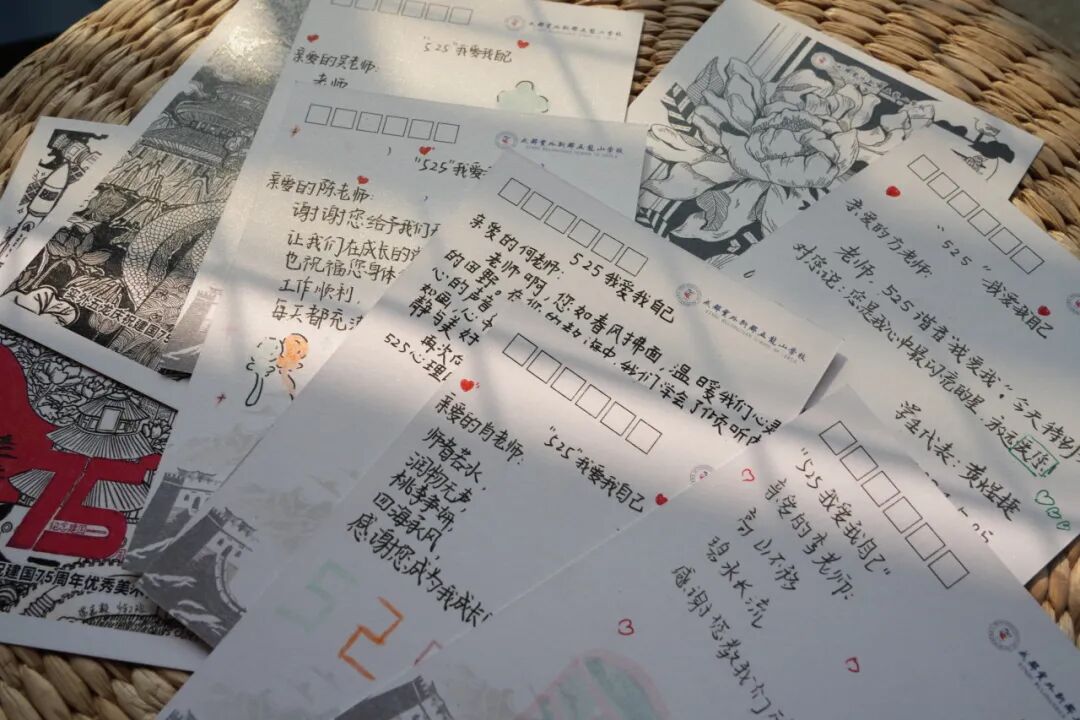 "525"我爱我自己
亲爱的吴老师:
老师
成都实外新都五龙山学校
"525"我爱
亲爱的陈老师:
谢谢您给予我们
让我们在成长的
也祝福您身体
工作顺利,
每天都充
成都实外新都五龙山学校
525我爱我自己
亲爱的何老师:
老师啊,您如春风拂面,温暖我们心灵
的田野。在您的教诲中,我们学会了倾听内
心的声音
如画,心中
静与美好
再次
525心理
成都实外新都五龙山学校
"525"我爱我自己
亲爱的肖老师:
师者若水,
润物无声,
桃李争妍,
四海承风,
感谢您,成为我成长
52
"525我爱我自己"
亲爱的李老师:
高山不移
碧水长流
感谢您教我们
"525"我爱我自己
亲爱的方老师:
老师,525谐音"我爱我"。今天特别
对您说:您是我心中最闪亮的星,永远爱您!
学生代表:黄煜捷
庆祝建国7
75
祝建国75周年优秀美